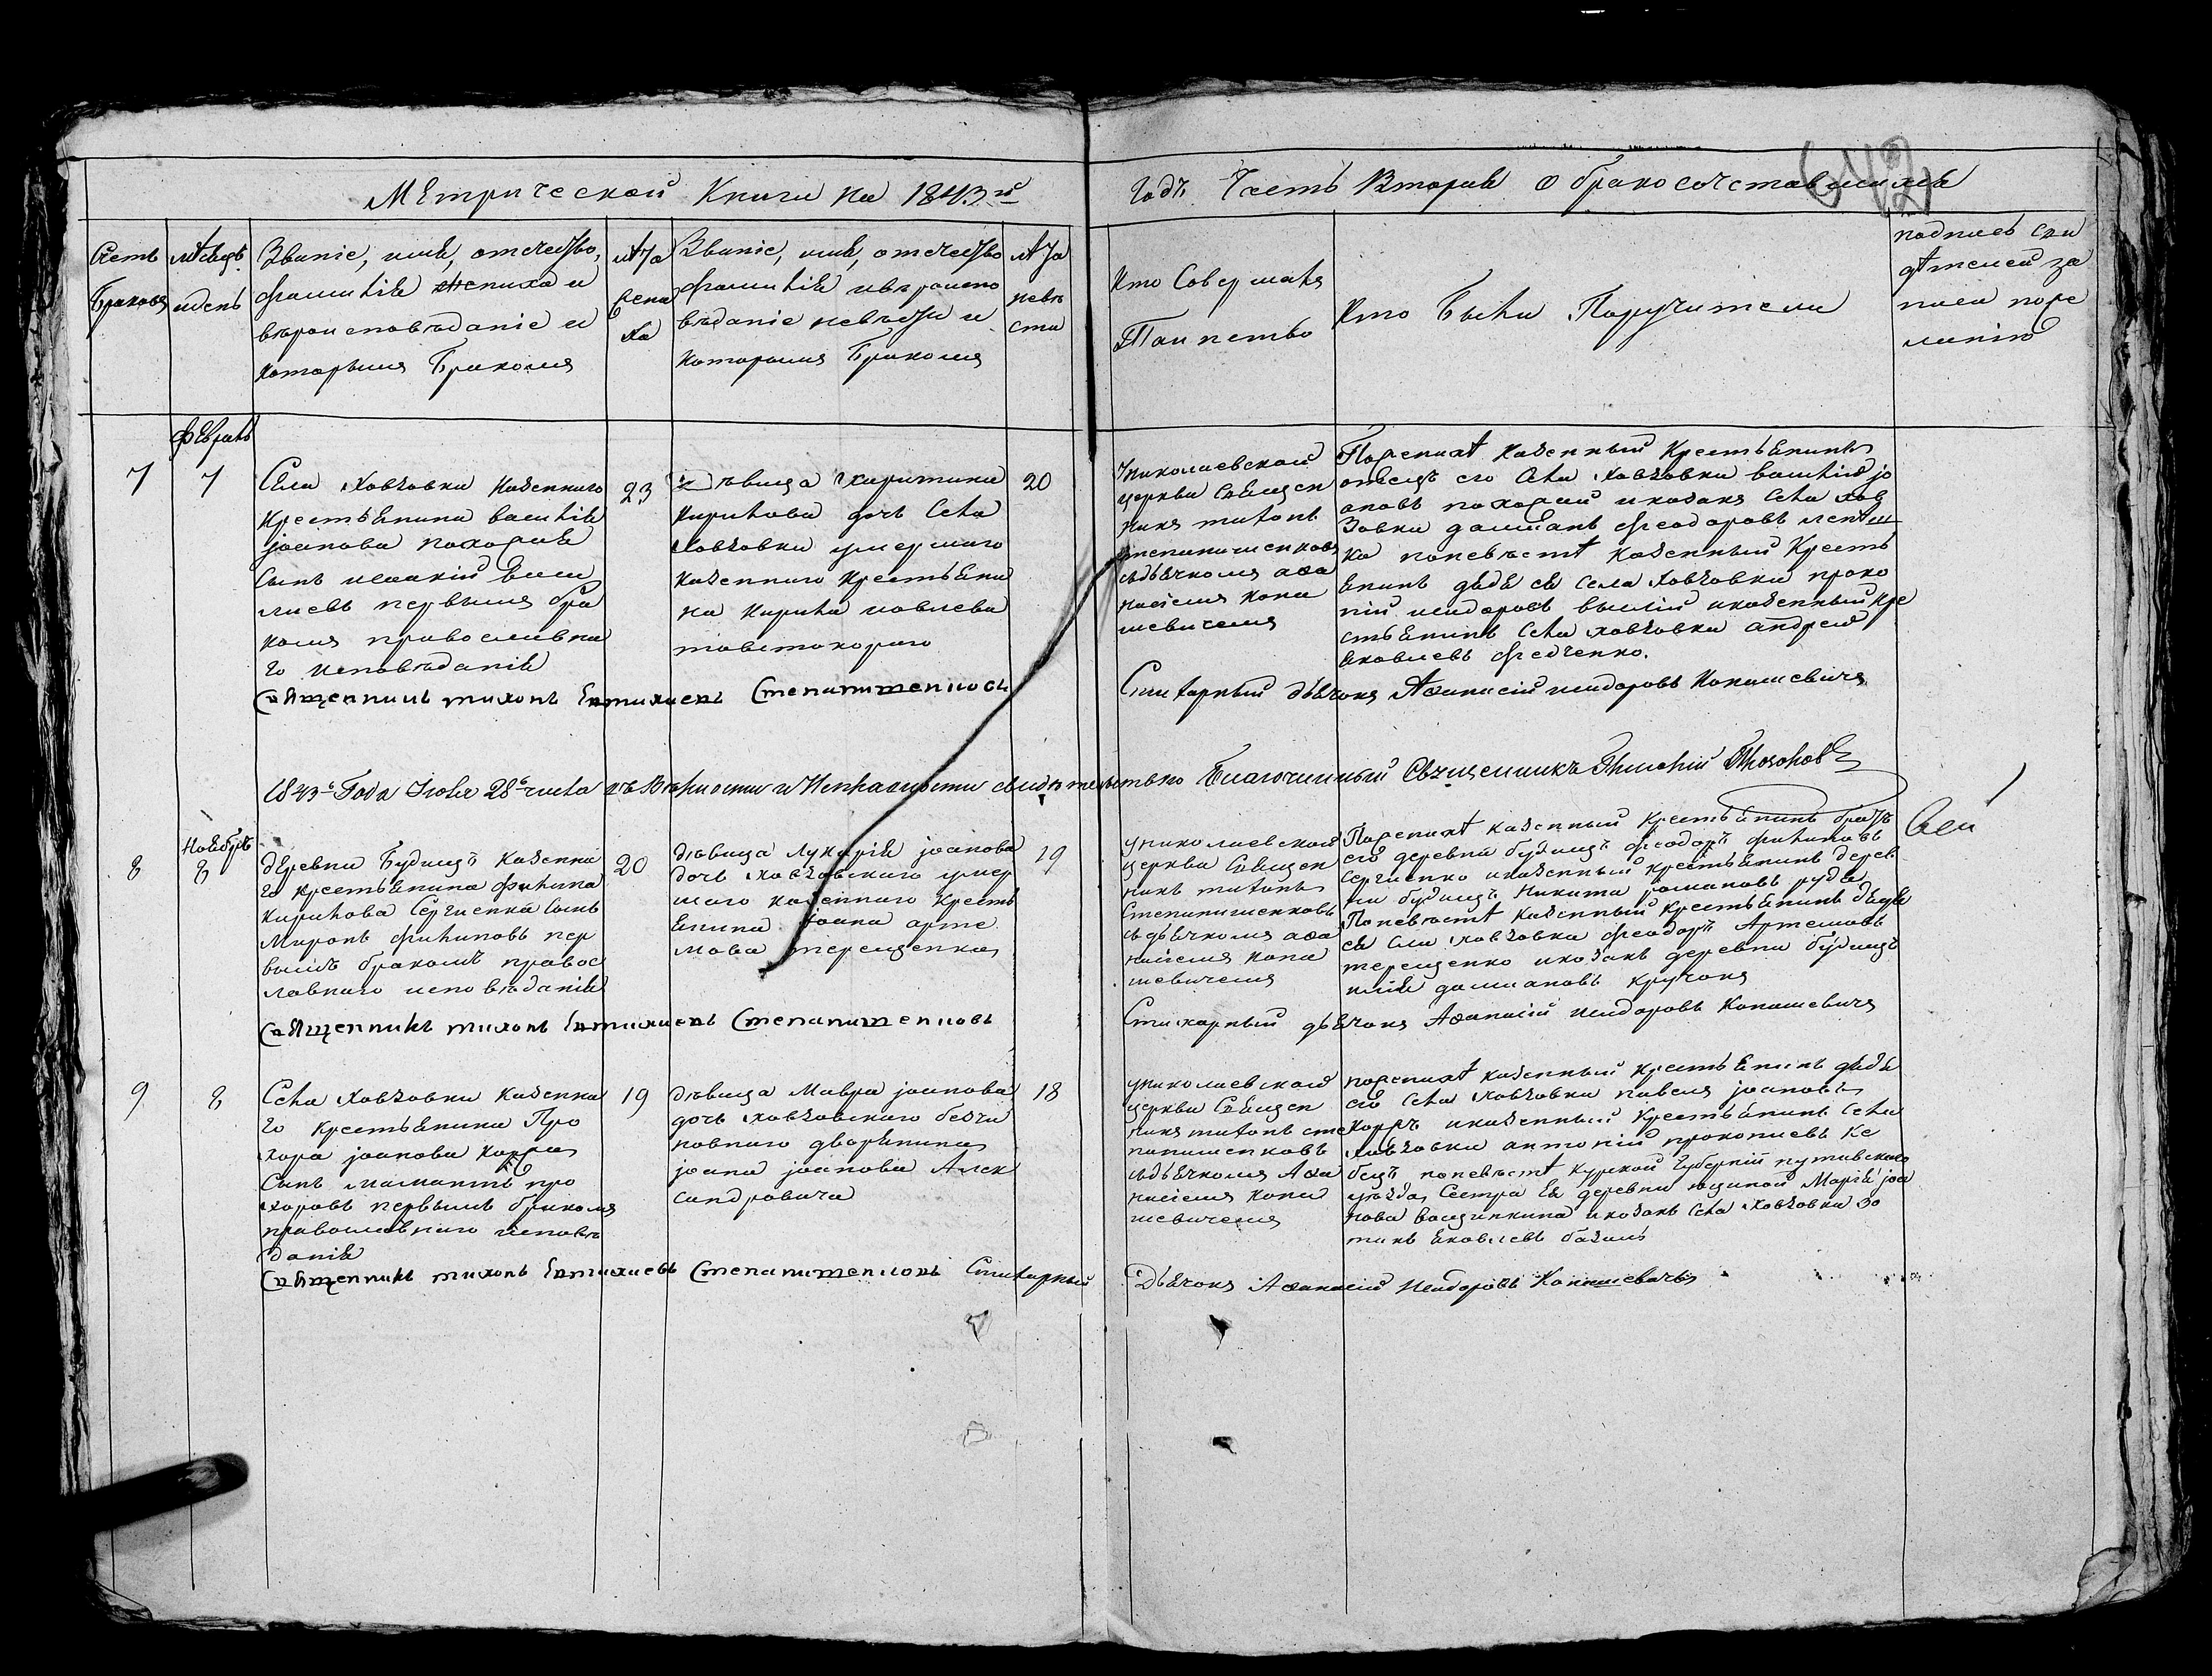 Метрической Книги на 1843й
Годъ Часть Вторая о бракосочетавшихся
642
Счетъ
Браковъ
мѣсяцъ
идень
Званіе, имя, отечество,
фамилія жениха и
вѣроисповѣданіе и
которымъ Бракомъ
лѣта
жени
ха
Званіе, имя, отечество
фамилія ивѣроиспо
вѣданіе невѣсты и
которымъ Бракомъ
лѣта
невѣ
сты
Кто Совершалъ
Таинство
Кто Были Поручители
подпись сви
дѣтелей за
писи поже
ланію
февраль
7
7
Села Ховзовки Казеннаго
Крестьянина василія
јоанова
Сынъ василиевъ первымъ бра
комъ православна
го исповѣданія
23
дѣвица харитина
Кирилова дочь Села
Ховзовки умершаго
казеннаго крестьяни
на Кирила
20
Уніколаевской
церкви Священ
никъ тихонъ
степанишенковъ
сдьячкомъ афа
насіемъ Копа
шевичемъ
Пожениху Казенный Крестьянинъ
отецъ его Села Ховзовки василій јо
ановъ похорий иказакъ Села Хов
зовки даміанъ феодоровъ
ка поневѣстѣ казенный Кресть
янинъ дядя ея села Ховзовки проко
пій исидоровъ иказенный Кре
стьянинъ Села Ховзовки андрей
яковлевъ федченко.
Священникъ тихонъ Евтихиевъ Степанишенковъ
Стихарный дьячокъ Афанасій исидоровъ Копашевичъ
1843го Года Іюля 28го числа въ Вѣрности и Исправности свидѣтельствую Благочинный Священникъ
ноябрь
8
8
деревни Будищъ Казенна
го крестьянина филипа
Кирилова Сергиенка Сынъ
Миронъ филиповъ пер
вымъ бракомъ правос
лавнаго исповѣданія
20
дѣвица Лукерія јоанова
дочь ховзовскаго умер
шаго казеннаго кресть
янина јоана арте
мова терещенка
19
уніколаевской
церкви Священ
никъ тихонъ
Степанишенковъ
сдьячкомъ афа
насіемъ копа
шевичемъ
Пожениху казенный крестьянинъ братъ
его деревни будищъ феодоръ филиповъ
Сергиенко иказенный крестьянинъ дерев
ни будищъ Никита романовъ руда
Поневѣстѣ казенный крестьянинъ дядя
ея Села Ховзовки феодоръ Артемовъ
терещенко иказакъ деревни будищъ
илія даміановъ кручокъ
Священникъ тихонъ Евтихиевъ Степанишенковъ
Стихарный дьячокъ Афанасій исидоровъ Копашевичъ
9
8
Села Ховзовки Казенна
го крестьянина Про
хора јоанова Корра
Сынъ мамантъ про
хоровъ первымъ бракомъ
православнаго исповѣ
данія
19
дѣвица Мавра јоанова
дочь ховзовскаго безчи
новнаго дворянина
јоана јоанова Алек
сандровича
18
уніколаевской
церкви Священ
никъ тихонъ сте
панишенковъ
сдьячкомъ Афа
насіемъ копа
шевичемъ
пожениху казенный крестьянинъ дядя
его Села Ховзовки павелъ јоановъ
Корръ иказенный Крестьянинъ Села
Ховзовки антоній прокопиевъ Ке
бецъ поневѣстѣ курской Губерніи путивскаго
уѣзда Сестра Ея деревни Марія јоа
нова иказакъ Села Ховзовки зо
тикъ яковлевъ базиль
Священникъ тихонъ Евтихиевъ Степанишенковъ Стихарный
Дьячокъ Афанасій Исидоровъ Копашевичъ